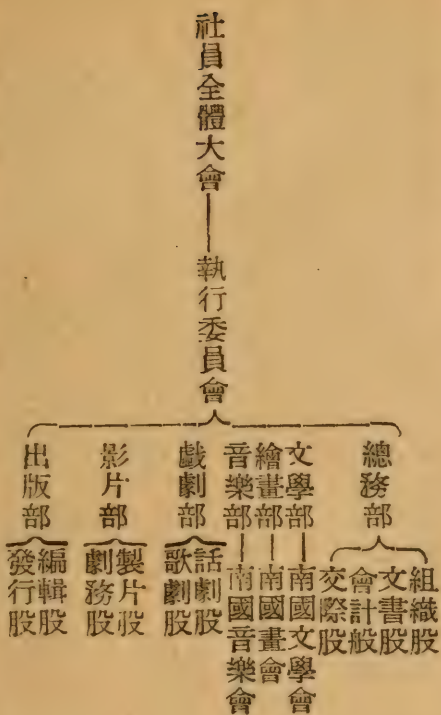 社員全體大會——執行委員會
總務部
組織股
文書股
會計般
交際股
文學部—南國文學會
繪畫部—南國畫會
音樂部—南國音樂會
戲劇部
話劇股
歌劇股
影片部
製片股
劇務股
出版部
編輯股
發行股